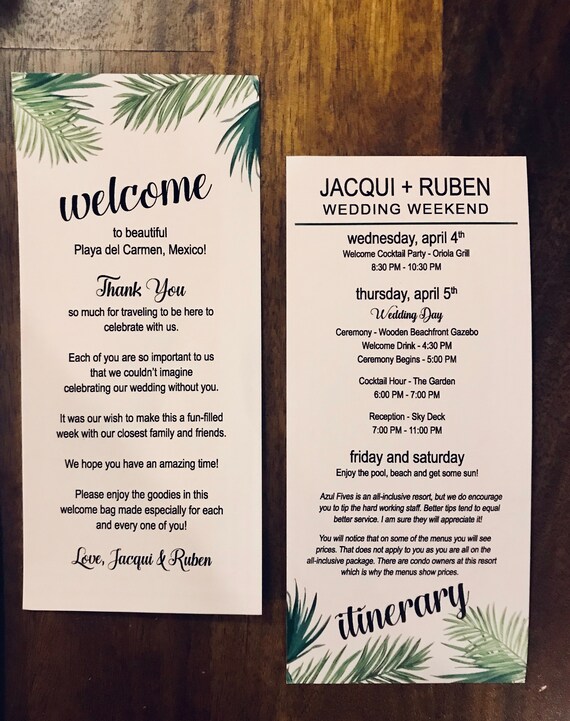 welcome
to beautiful
Playa del Carmen, Mexico!
Thank You
so much for traveling to be here to
celebrate with us.
Each of you are so important to us
that we couldn't imagine
celebrating our wedding without you.
It was our wish to make this a fun-filled
week with our closest family and friends.
We hope you have an amazing time!
Please enjoy the goodies in this
welcome bag made especially for each
and every one of you!
Love, Jacqui & Ruben
JACQUI + RUBEN
WEDDING WEEKEND
wednesday, april 4th
Welcome Cocktail Party - Oriola Grill
8:30 PM - 10:30 PM
thursday, april 5th
Wedding Day
Ceremony - Wooden Beachfront Gazebo
Welcome Drink - 4:30 PM
Ceremony Begins - 5:00 PM
Cocktail Hour - The Garden
6:00 PM - 7:00 PM
Reception - Sky Deck
7:00 PM - 11:00 PM
friday and saturday
Enjoy the pool, beach and get some sun!
Azul Fives is an all-inclusive resort, but we do encourage
you to tip the hard working staff. Better tips tend to equal
better service. I am sure they will appreciate it!
You will notice that on some of the menus you will see
prices. That does not apply to you as you are all on the
all-inclusive package. There are condo owners at this resort
which is why the menus show prices.
itinerary